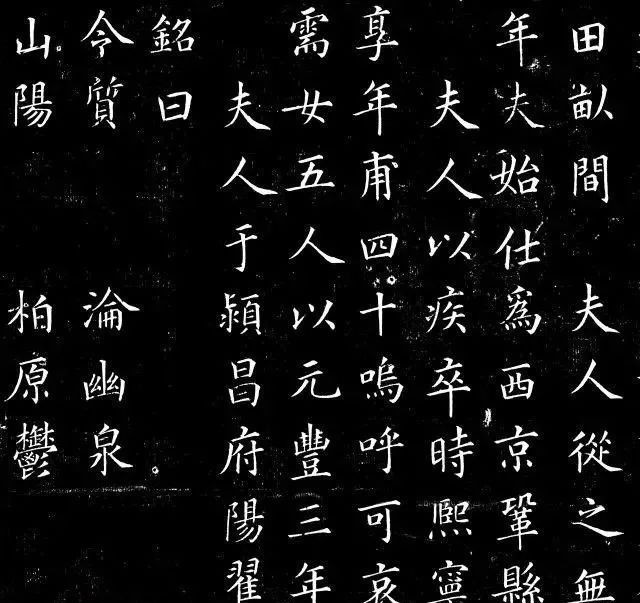 田畝間 夫人從之無
年夫始仕爲西京鞏縣
夫人以疾卒時熙寧
享年甫四十嗚呼可哀
需女五人以元豐三年
夫人于潁昌府陽翟
銘曰
令質 淪幽泉
山陽 柏原鬱